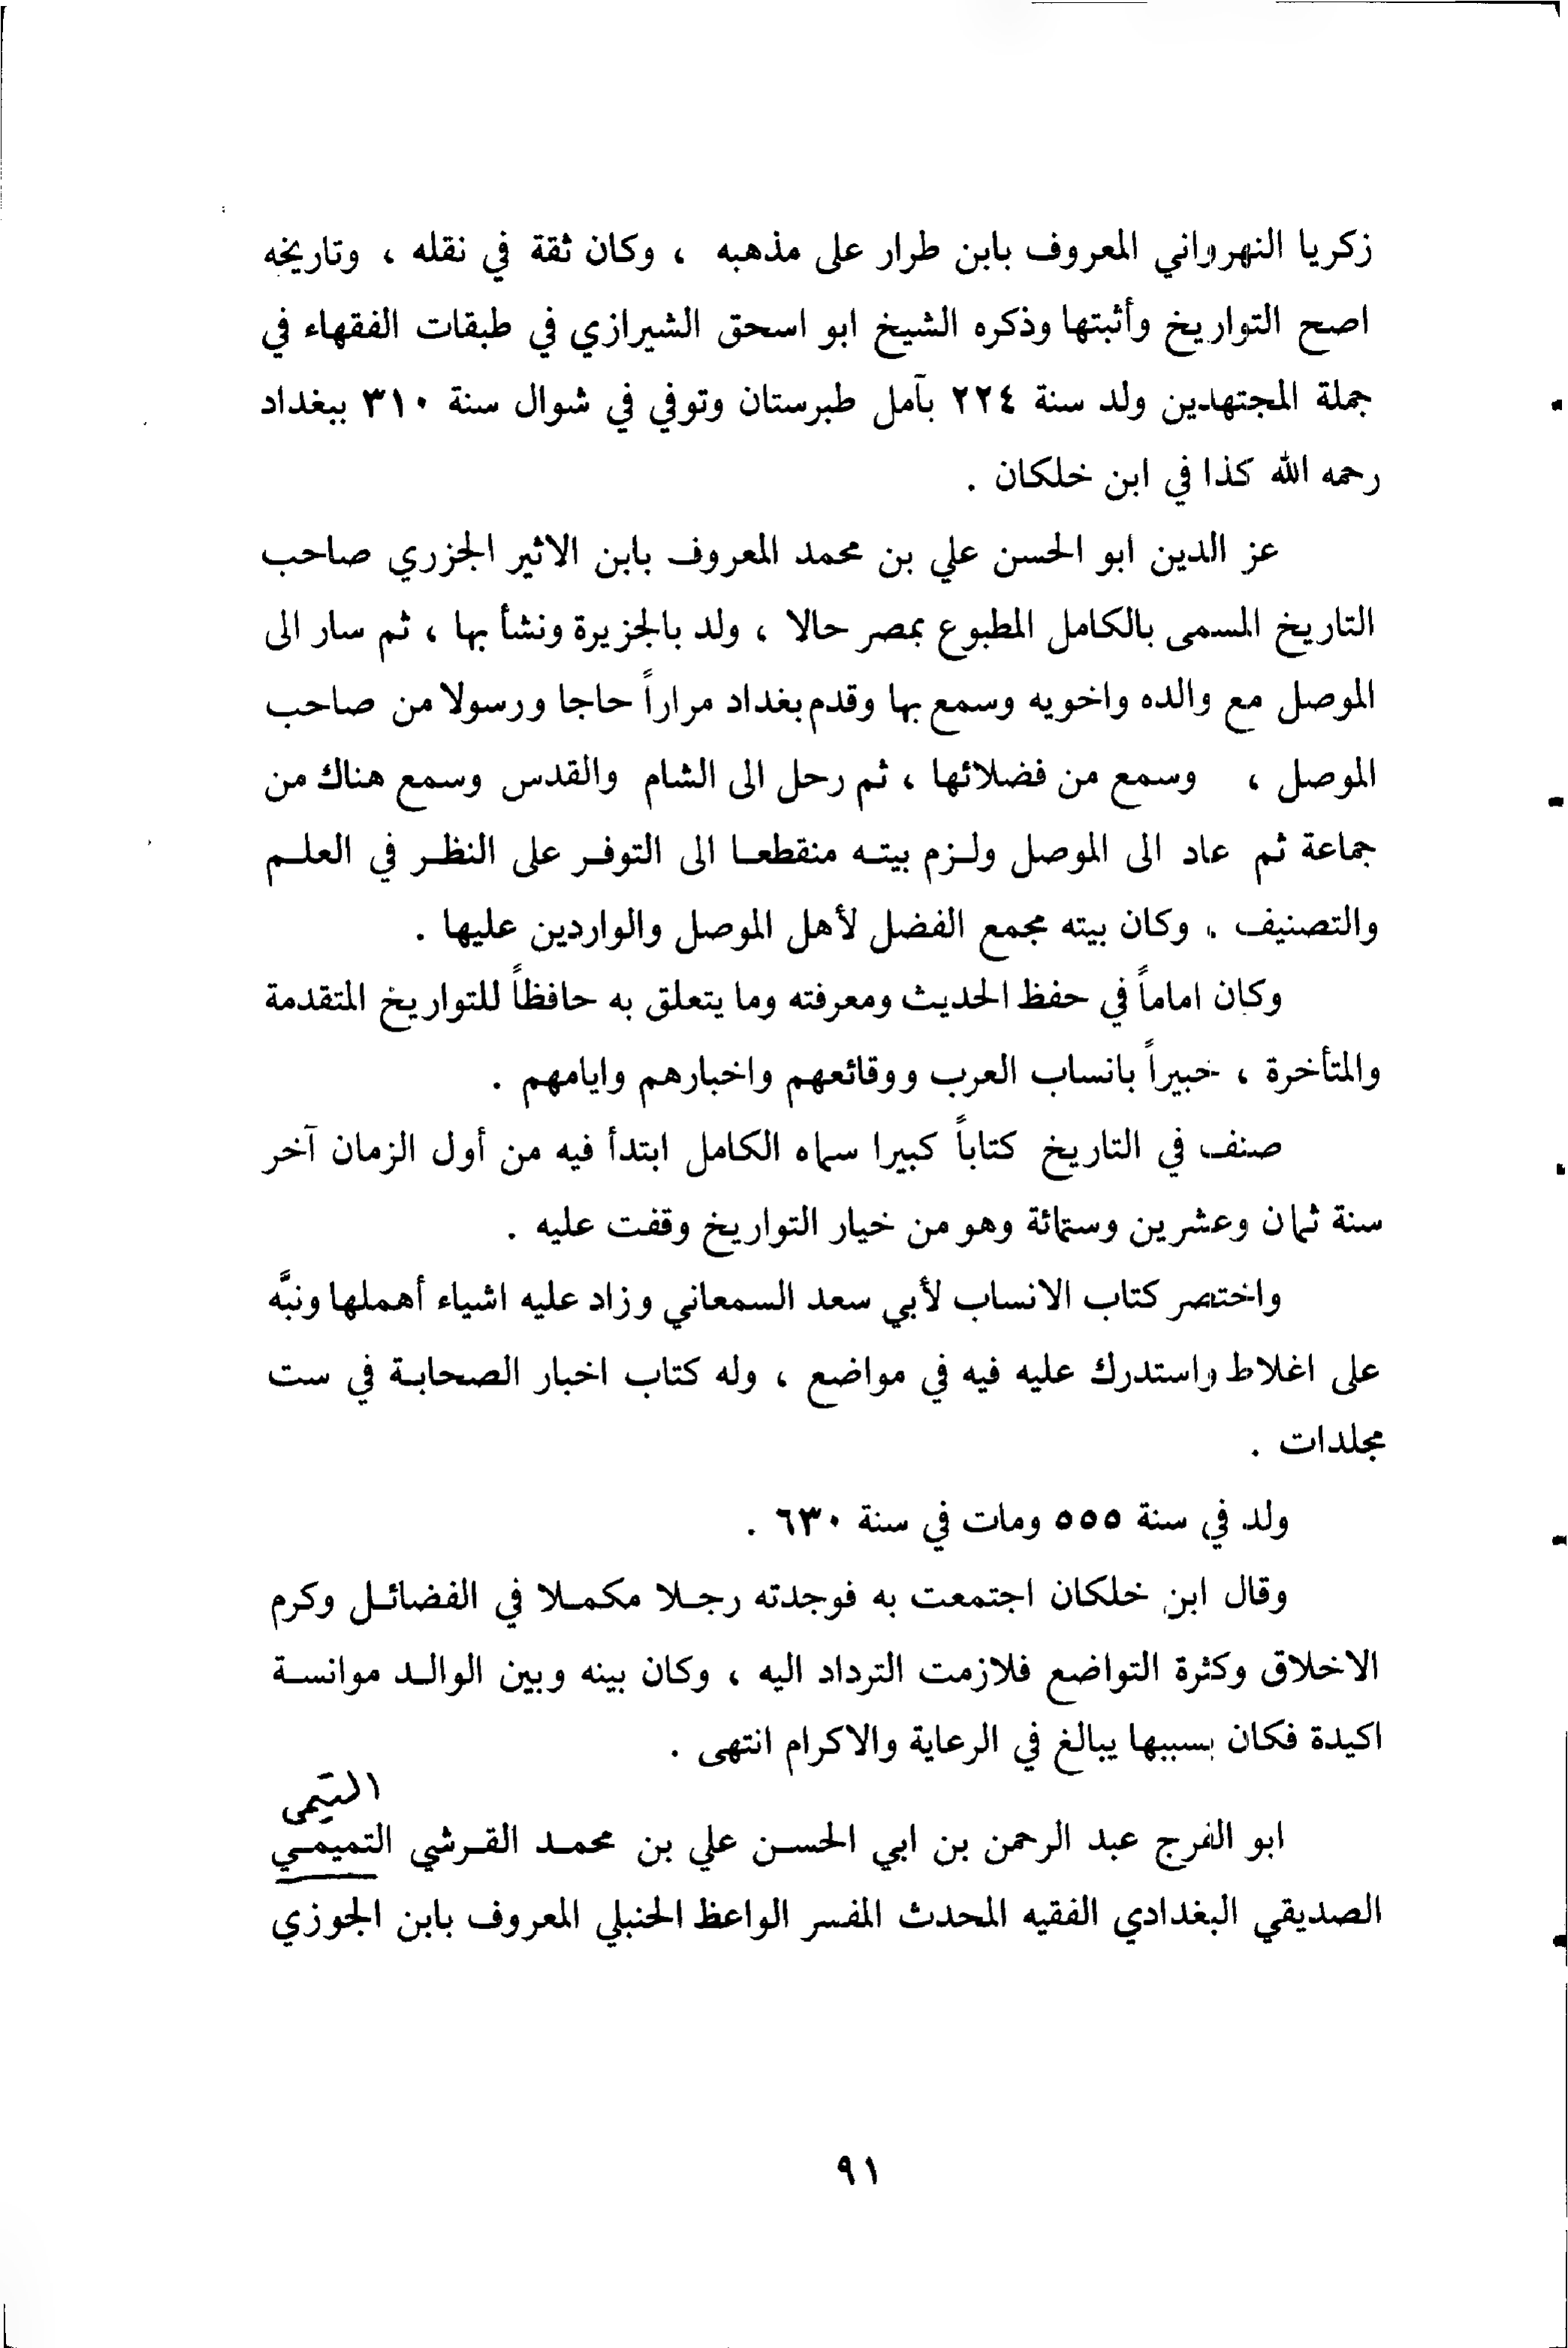 زكريا النهرواني المعروف بابن طرار على مذهبه ، وكان ثقة في نقله ، وتاريخه
اصح التواريخ وأثبتها وذكره الشيخ ابو اسحق الشيرازي في طبقات الفقهاء في
جملة المجتهدين ولد سنة ٢٢٤ بآمل طبرستان وتوفي في شوال سنة ٣١٠ ببغداد
رحمه الله كذا في ابن خلكان .
عز الدين ابو الحسن علي بن محمد المعروف بابن الاثير الجزري صاحب
التاريخ المسمى بالكامل المطبوع بمصر حالا ، ولد بالجزيرة ونشأ بها ، ثم سار الى
الموصل مع والده واخويه وسمع بها وقدم بغداد مراراً حاجا ورسولا من صاحب
الموصل ، وسمع من فضلائها ، ثم رحل الى الشام والقدس وسمع هناك من
جماعة ثم عاد الى الموصل ولـزم بيتـه منقطعـا الى التوفـر على النظـر في العلـم
والتصنيف ، وكان بيته مجمع الفضل لأهل الموصل والواردين عليها .
وكان اماماً في حفظ الحديث ومعرفته وما يتعلق به حافظاً للتواريخ المتقدمة
والمتأخرة ، خبيراً بانساب العرب ووقائعهم واخبارهم وايامهم .
صنف في التاريخ كتاباً كبيرا سماه الكامل ابتدأ فيه من أول الزمان آخر
سنة ثمان وعشرين وستمائة وهو من خيار التواريخ وقفت عليه .
واختصر كتاب الانساب لأبي سعد السمعاني وزاد عليه اشياء أهملها ونبَّه
على اغلاط واستدرك عليه فيه في مواضع ، وله كتاب اخبار الصحابـة في ست
مجلدات .
ولد في سنة ٥٥٥ ومات في سنة ٦٣٠ .
وقال ابن خلكان اجتمعت به فوجدته رجـلا مكمـلا في الفضائـل وكرم
الاخلاق وكثرة التواضع فلازمت الترداد اليه ، وكان بينه وبين الوالـد موانسـة
اكيدة فكان بسببها يبالغ في الرعاية والاكرام انتهى .
التيمى
ابو الفرج عبد الرحمن بن ابي الحسـن علي بن محمـد القـرشي التميمـي
الصديقي البغدادي الفقيه المحدث المفسر الواعظ الحنبلي المعروف بابن الجوزي
٩١